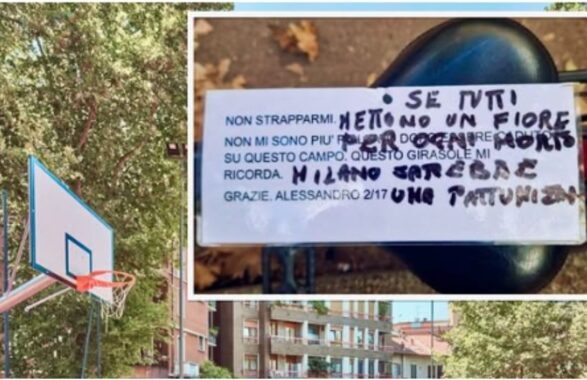 SE TUTTI
NON STRAPPARMI. METTONO UN FIORE
NON MI SONO PIU' DOPO ESSERE CADUTO PER OGNI MORTO
SU QUESTO CAMPO. QUESTO GIRASOLE MI
RICORDA. MILANO SAREBBE
GRAZIE. ALESSANDRO 2/17 UNA